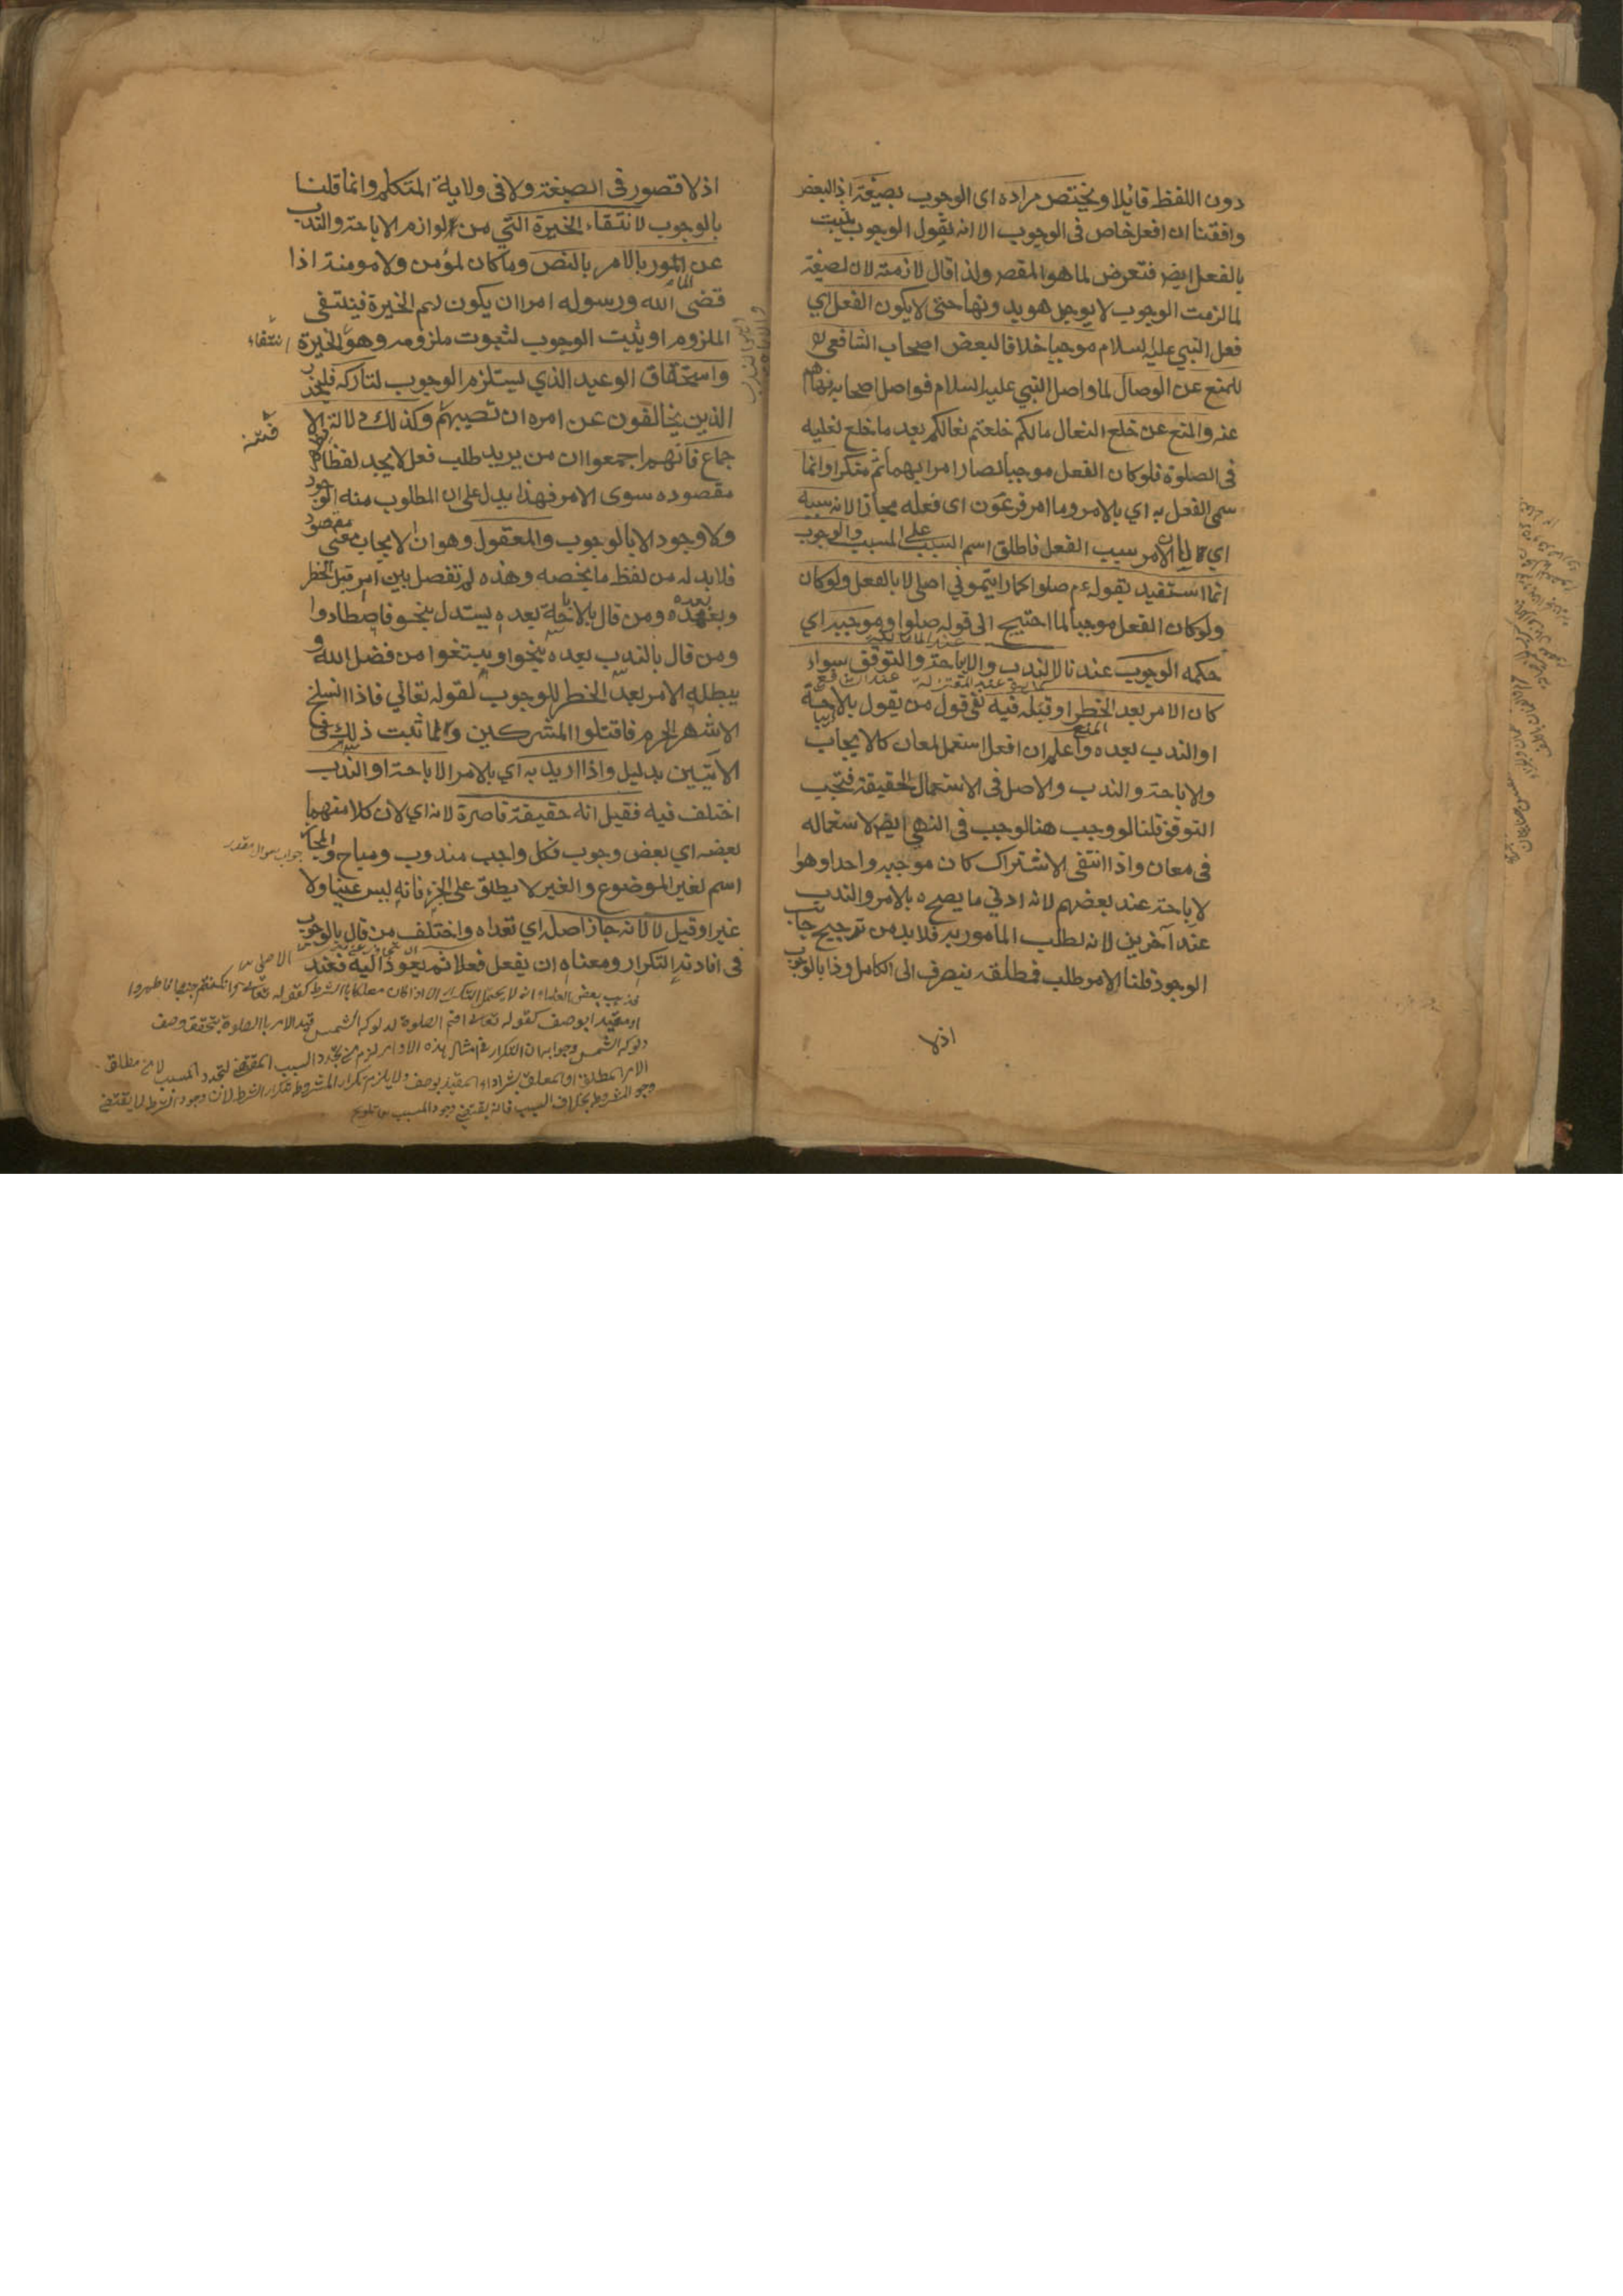 دون اللفظ قائلا ويختص مراده اى الوجوب بصيغة اذ البعض
وافقنا ان افعل خاص فى الوجوب الا انه يقول الوجوب يثبت
بالفعل ايضر فتعرض لما هو المقصر ولذا قال لازمة لان لصيغة
لما لزمت الوجوب لا يوجد هو بدونها حتى لا يكون الفعل اي
فعل النبي عليه السلام موجبا خلافا لبعض اصحاب الشافعي
للمنع عن الوصال لما واصل النبي عليه السلام فواصل اصحابه نهاهم
عنه والمنع عن خلع النعال مالكم خلعتم نعالكم بعد ما خلع نعليه
فى الصلوة فلو كان الفعل موجبا لصار امرا بهما ثم منكرا وانما
سمى الفعل به اي بالامر وما امر فرعون اى فعله مجازا لانه سببه
اي لان الامر سبب الفعل فاطلق اسم السبب على المسبب والوجوب
انما استفيد بقوله عم صلوا كما رايتموني اصلى لا بالفعل ولو كان
ولو كان الفعل موجبا لما احتيج الى قوله صلوا وموجبه اي
حكمه الوجوب عندنا لا الندب والاباحة والتوقف سواء
كان الامر بعد الخطر او قبله فيه نفى قول من يقول بالاباحة
او الندب بعده واعلم ان افعل استعمل لمعان كالايجاب
والاباحة والندب والاصل فى الاستعمال الحقيقة فتجب
التوقف قلنا لو وجب هنا لوجب فى النهى ايضر لاستعماله
فى معان واذا انتفى الاشتراك كان موجبه واحدا وهوا
لاباحة عند بعضهم لانه ادني ما يصح ه بالامر والندب
عند آخرين لانه لطلب المامور به فلا بد من ترجيح جانب
الوجود قلنا الامر طلب فمطلقه ينصرف الى الكامل وذا بالوجوب
اذلا
اذ لا قصور فى الصيغة ولا فى ولاية المتكلم وانما قلنا
بالوجوب لانتقاء الخيرة التي من لوازم الاباحة والندب
عن المور بالامر بالنص وما كان لمؤمن ولا مومنة اذا
قضى الله ورسوله امرا ان يكون لهم الخيرة فينتفى
الملزوم او يثبت الوجوب لثبوت ملزومه وهو الخيرة
انتفاء
واستحقاق الوعيد الذي يستلزم الوجوب لتاركه فليحذر
الذين يخالفون عن امره ان تصيبهم وكذلك دلالة الا
فتنة
جماع فانهم اجمعوا ان من يريد طلب فعل لا يجد لفظا
مقصوده سوى الامر فهذا يدل على ان المطلوب منه الوجود
ولا وجود الا بالوجوب والمعقول وهو ان الايجاب معنى مقصود
فلا بد له من لفظ ما يخصه وهذه لم تفصل بين امر قبل الخطر
وبعده ومن قال بالاباحة بعده يستدل بنحو فاصطادوا
ومن قال بالندب بعده بنحو وابتغوا من فضل الله و
يبطله الامر بعد الخطر للوجوب لقوله تعالي فاذا انسلخ
الاشهر الحرم فاقتلوا المشركين وانما ثبت ذلك فى
الايتين بدليل واذا اريد به اي بالامر الاباحة او الندب
اختلف فيه فقيل انه حقيقة قاصرة لانه اي لان كلا منهما
بعضه اي بعض وجوب فكل واجب مندوب ومباح والمجاز
جواب سوال مقدر
اسم لغير الموضوع والغير لا يطلق على الجزء فانه ليس عينا ولا
غيرا وقيل لا لانه جاز اصله اي تعداه واختلف من قال بالوجوب
فى افادته التكرار ومعناه ان يفعل فعلا ثم يعود اليه فعند
فذهب بعض العلماء انه لا يحتمل التكرار الا اذا كان معلقا بالشرط كقوله تعالى وان كنتم جنبا فاطهروا
او مقيدا بوصف كقوله تعالى اقم الصلوة لدلوك الشمس قيد الامر بالصلوة بتحقق وصف
دلوك الشمس وجوابه ان التكرار فى امثال هذه الاوامر لزم من تجدد السبب المقتضى لتجدد المسبب لا من مطلق
الامر المطلق او المعلق بشرط او المقيد بوصف ولا يلزم تكرار المشروط بتكرار الشرط لان وجود الشرط لا يقتضى
وجود المشروط بخلاف السبب فانه يقتضى وجود المسبب من تلويح